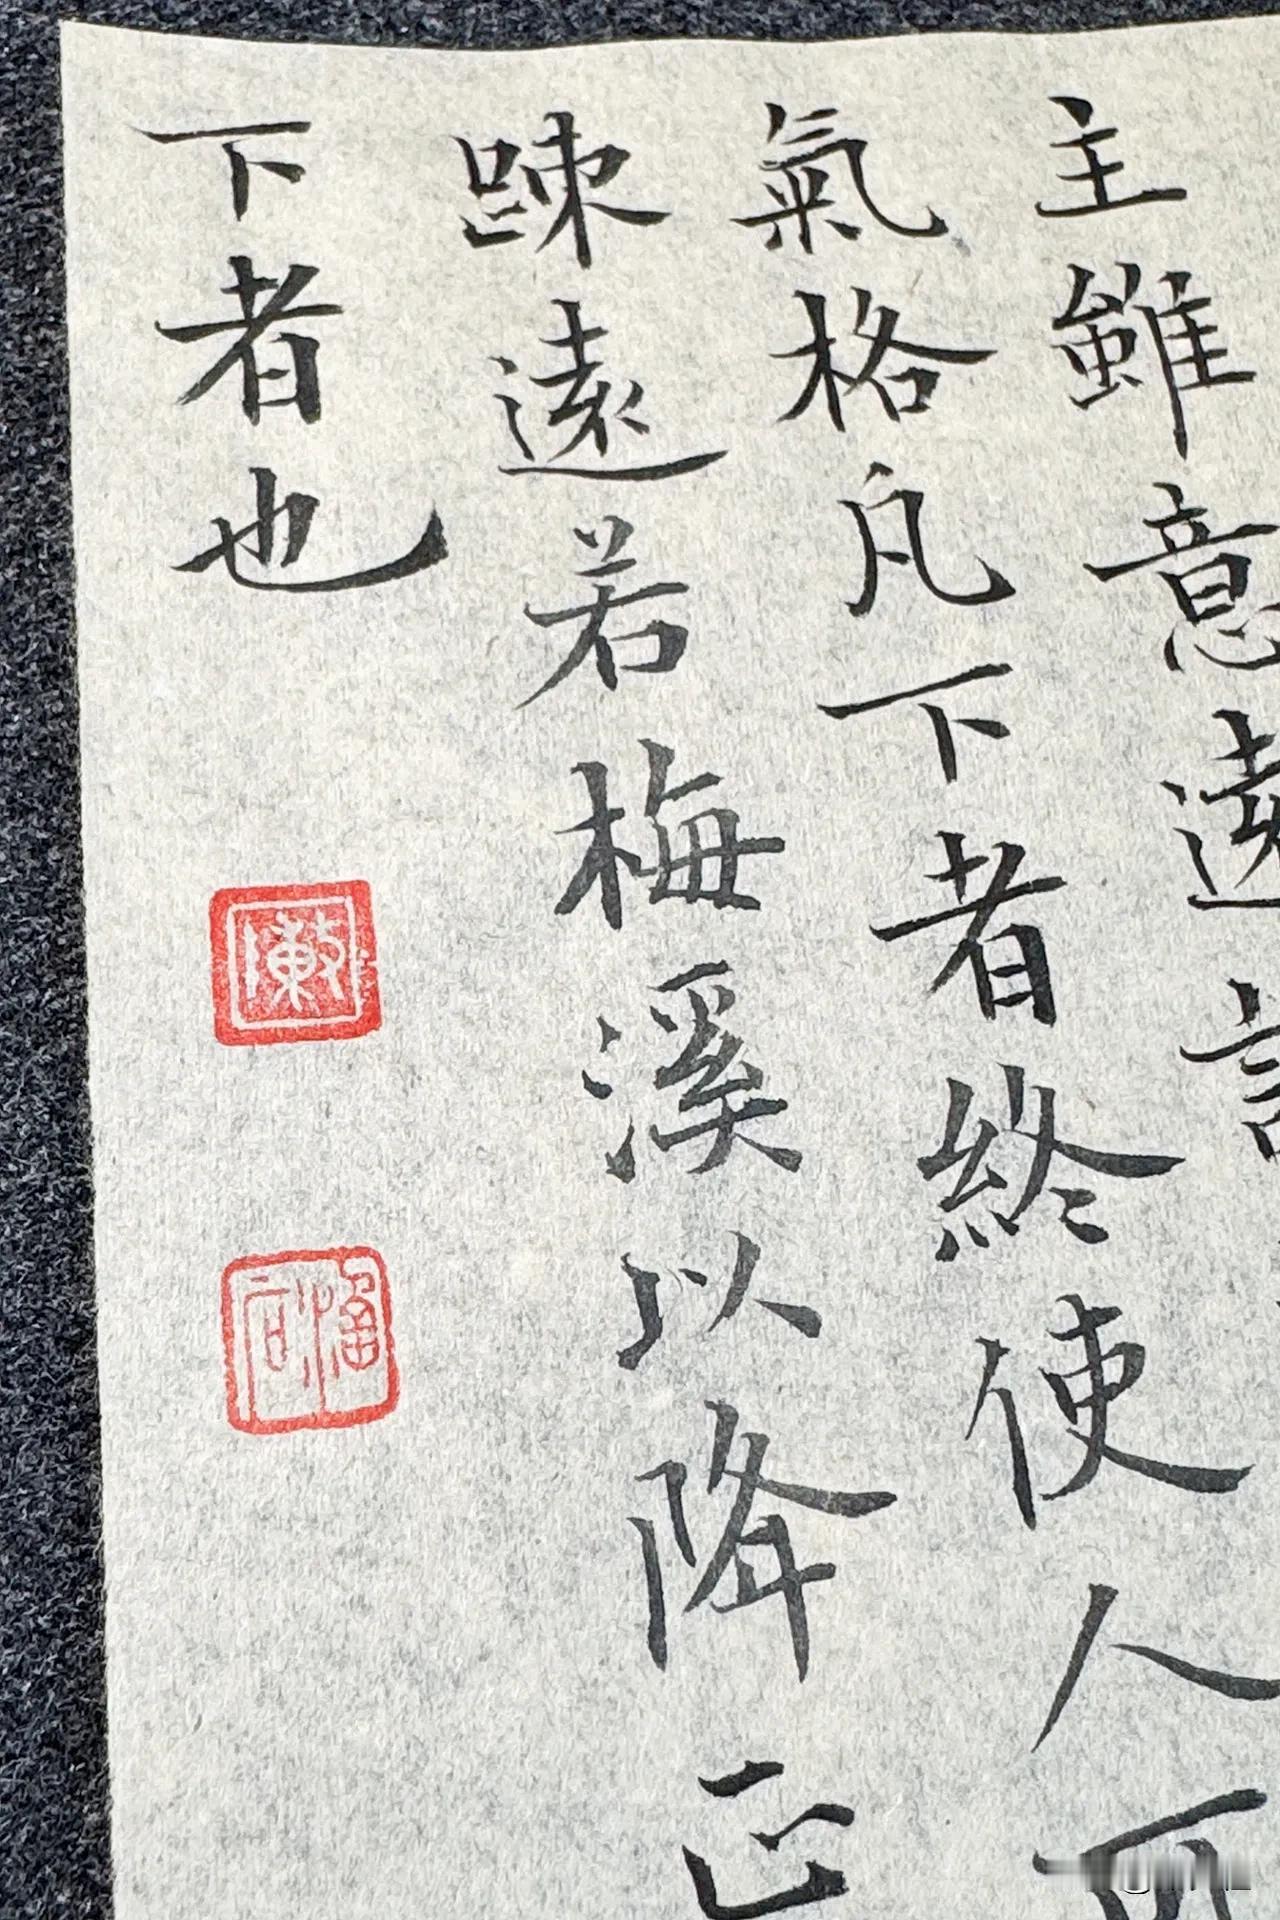 主雖意遠
氣格凡下者終使人可
踈遠若梅溪以降正
下者也